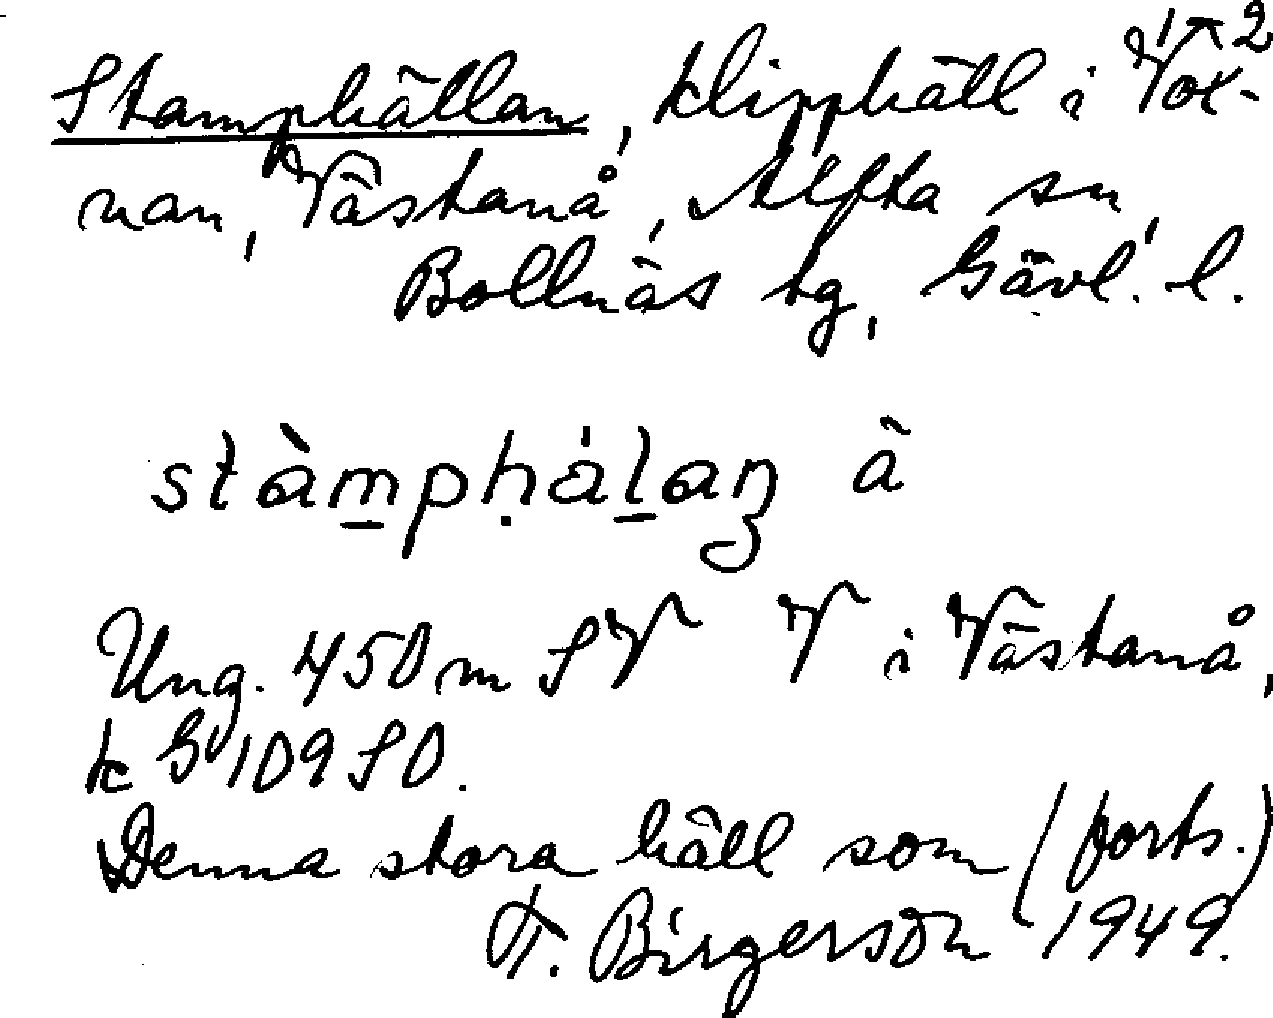 1-2
Stamphällan, klipphäll i Vox-
nan, Västanå, Alfta sn,
Bollnäs tg, Gävl. l.
stàmpḥáḻaꞥ ã
Ung. 450 m SV V i Västanå,
k G 109 SO.
Denna stora häll som (forts.)
F. Birgerson 1949.